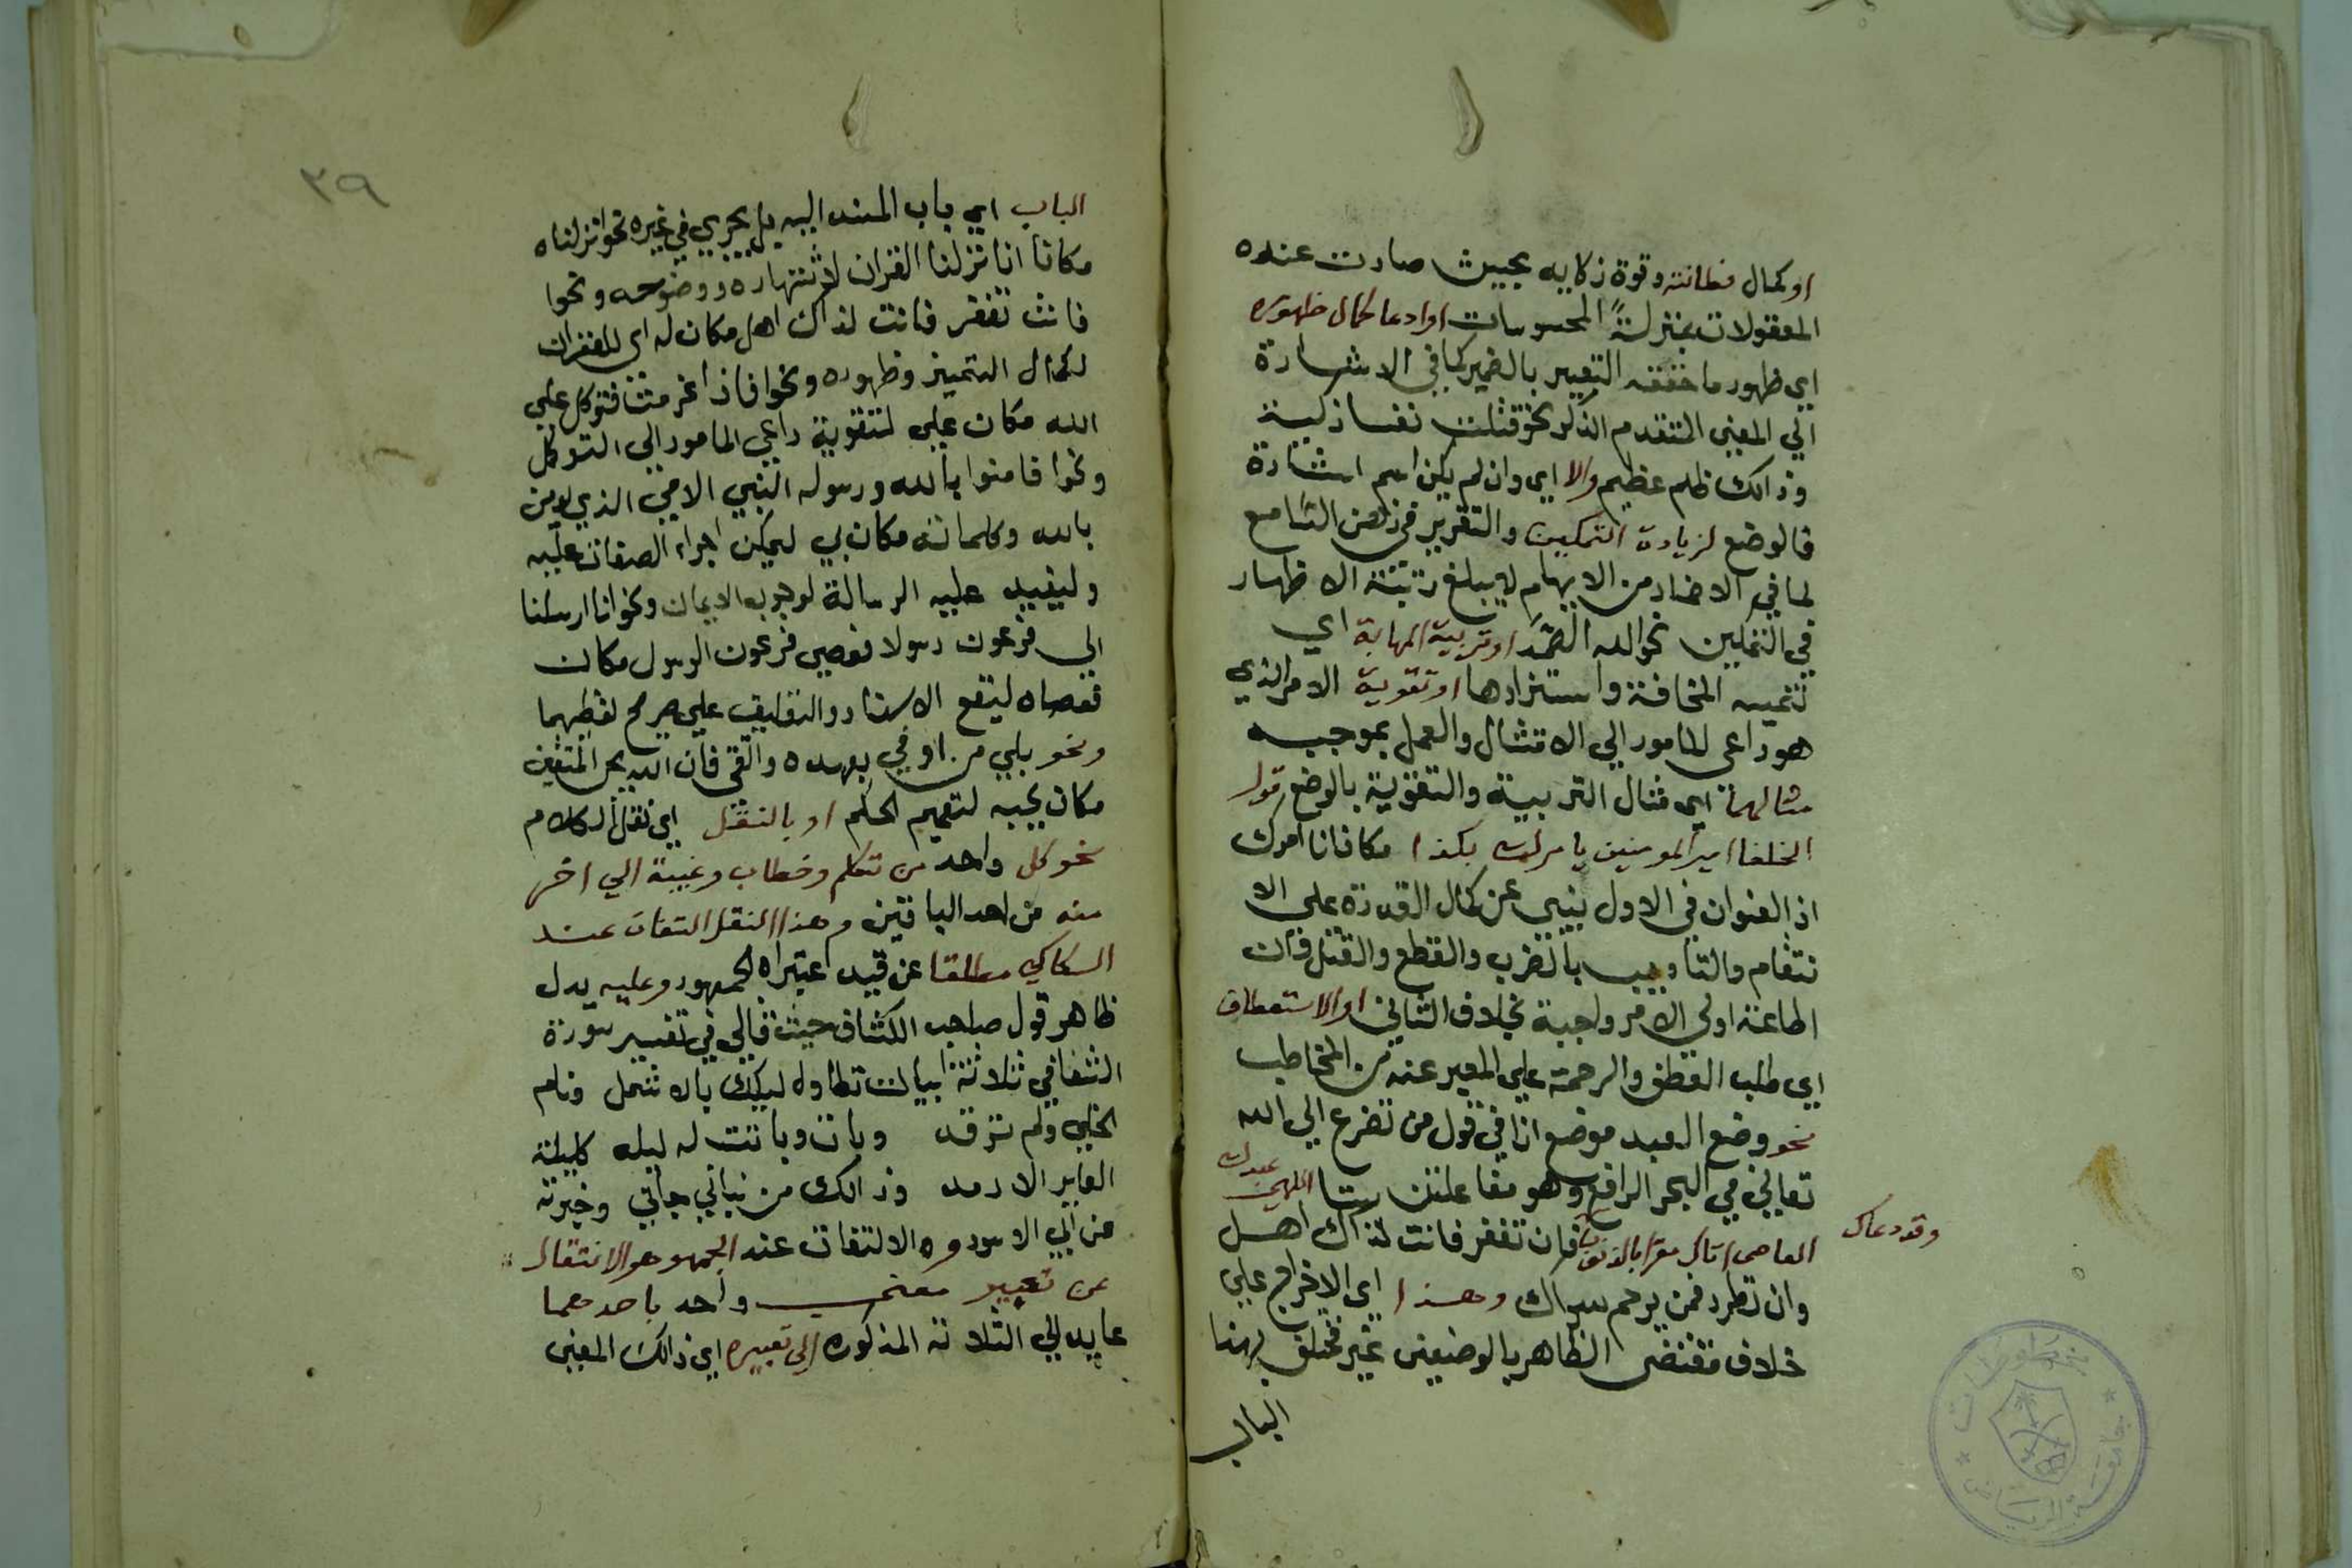 او كمال فطانته وقوة ذكايه بحيث صارت عنده
المعقولات بمنزلة المحسوسات او ادعا كمال ظهوره
اي ظهور ما حققه التعبير بالضمير كما في الاشارة
الي المعني المتقدم الذكر نحو قتلت نفسا زكية
وذالك ظلم عظيم والا اي وان لم يكن اسم اشارة
فالوضع لزيادة التمكين والتقرير في ذهن السامع
لما في الاضمار من الابهام لا يبلغ رتبته الاظهار
في التمكين نحو الله الصمد او تربية المهابة اي
تنمية المخافة وازديادها او تقوية الامر الذي
هو داعي للمامور الي الامتثال والعمل بموجبه
مثالهما اي مثال التربية والتقوية بالوضع قول
الخلفا امير المومنين يامرك بكذا مكان انا امرك
اذ العنوان في الاول ينبي عن كمال القدرة علي الا
نتقام والتاديب بالضرب والقطع والقتل فان
اطاعة اولي الامر واجبة بخلاف الثاني او الاستعطاف
اي طلب العطف والرحمة علي المعبر عنه من المخاطب
نحو وضع العبد موضع انا في قول من تضرع الي الله
تعالي في البحر الوافر وهو مفاعلتن ستا الهي عبدك
العاصي اتاك مقرا بالذنوب وقد دعاك فان تغفر فانت لذاك اهل
وان تطرد فمن يرحم سواك وهذا اي الاخراج علي
خلاف مقتضي الظاهر بالوضعين غير مختلق بهذا
الباب
٣٩
الباب اي باب المسند اليه بل يجري في غيره نحو انزلناه
مكان انا نزلنا القران لاشتهاره ووضوحه ونحوا
فان تغفر فانت لذاك اهل مكان له اي للغفران
لكمال التمييز وظهوره ونحوا فاذا عزمت فتوكل علي
الله مكان علي لتقوية داعي المامور الي التوكل
ونحوا فامنوا بالله ورسوله النبي الامي الذي يومن
بالله وكلماته مكان بي ليمكن اجراء الصفات عليه
وليفيد عليه الرسالة لوجوب الايمان ونحو انا ارسلنا
الي فرعون رسولا فعصي فرعون الرسول مكان
فعصاه ليقع الاسناد والتعليق علي صريح لفظيهما
ونحو بلي من اوفي بعهده واتقي فان الله يحب المتقين
مكان يحبه لتعميم الحكم او بالنقل اي نقل الكلام
نحو كل واحد من تكلم وخطاب وغيبة الي اخر
منه من احد الباقين وهذا النقل التفات عند
السكاكي مطلقا عن قيد اعتبراه الجمهور وعليه يدل
ظاهر قول صاحب الكشاف حيث قال في تفسير سورة
الشفا في ثلاثة ابيات تطاول ليلك بالاثمد ونام
الخلي ولم ترقد وبات وباتت له ليلة كليلة
العاير الارمد وذالك من نباء جاني وخبرته
عن ابي الاسود و الالتفات عند الجمهور هو الانتقال
عن تعبير معني واحد باحدهما
عايد الي الثلاثة المذكورة الي تعبيره اي ذالك المعني